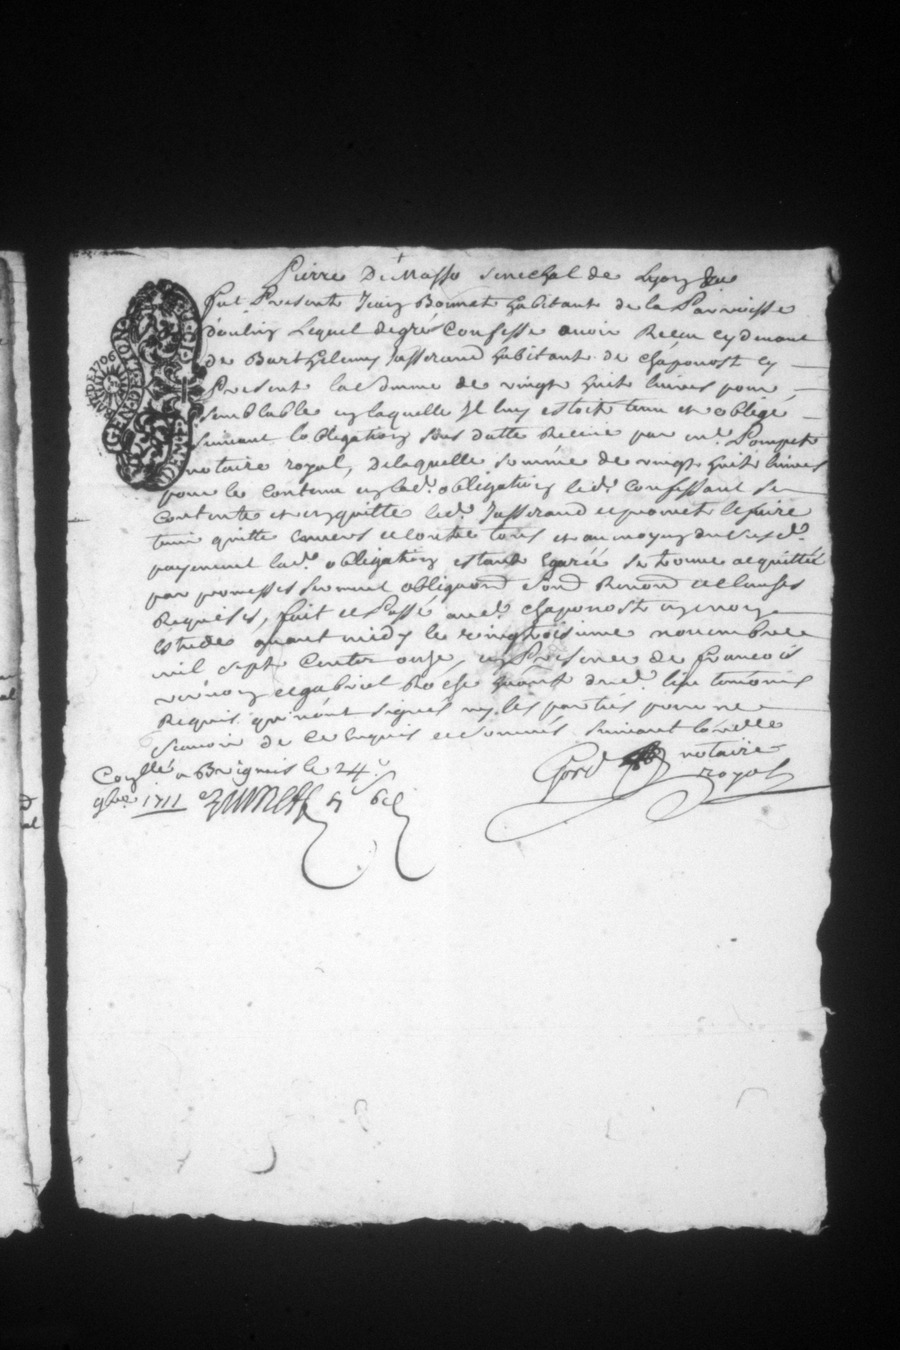 Pierre De Masso senechal de Lyon
fut Presente Jean Bonnet habitant de la Parroisse
d'oulin Lequel de gré Confesse avoir Receu cy devant
de Barthelemy Jasserand habitant de chaponost cy
Present la somme de vingt huit livres pour
semblable en laquelle Il luy estoit tenu et obligé
suivant lobligation sous datte Receue par me. Pompet
notaire royal, de laquelle somme de vingt huit livres
pour le contenu en lad. obligation led. Confessant se
contente et en quitte led. Jasserand et promet le faire
tenir quitte envers et contre tous et au moyen du susd.
payement lad. obligation estant Egarée acquittée
par promesses serment obligaon Renon et clauses
Requises, fait et Passé aud. chaponost en mon
Estude avant midy le vingtroisieme novembre
mil sept Cents onze, en Presence de francois
et gabriel dud. lieu temoins
Requis. qui n'ont signés ny les parties pour ne
scavoir de ce Enquis et sommés suivant
notaire
royal
Conllé a Brignais le 24e
9bre 1711
GEN DE LYON